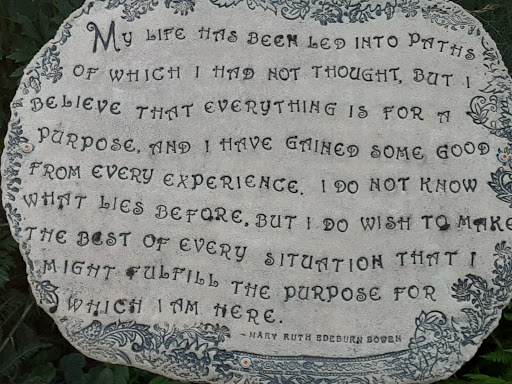 My life has been led into paths
of which I had not thought, but I
believe that everything is for a
purpose, and I have gained some good
from every experience. I do not know
what lies before, but I do wish to make
the best of every situation that I
might fulfill the purpose for
which I am here.
- Mary Ruth Edeburn Bowen